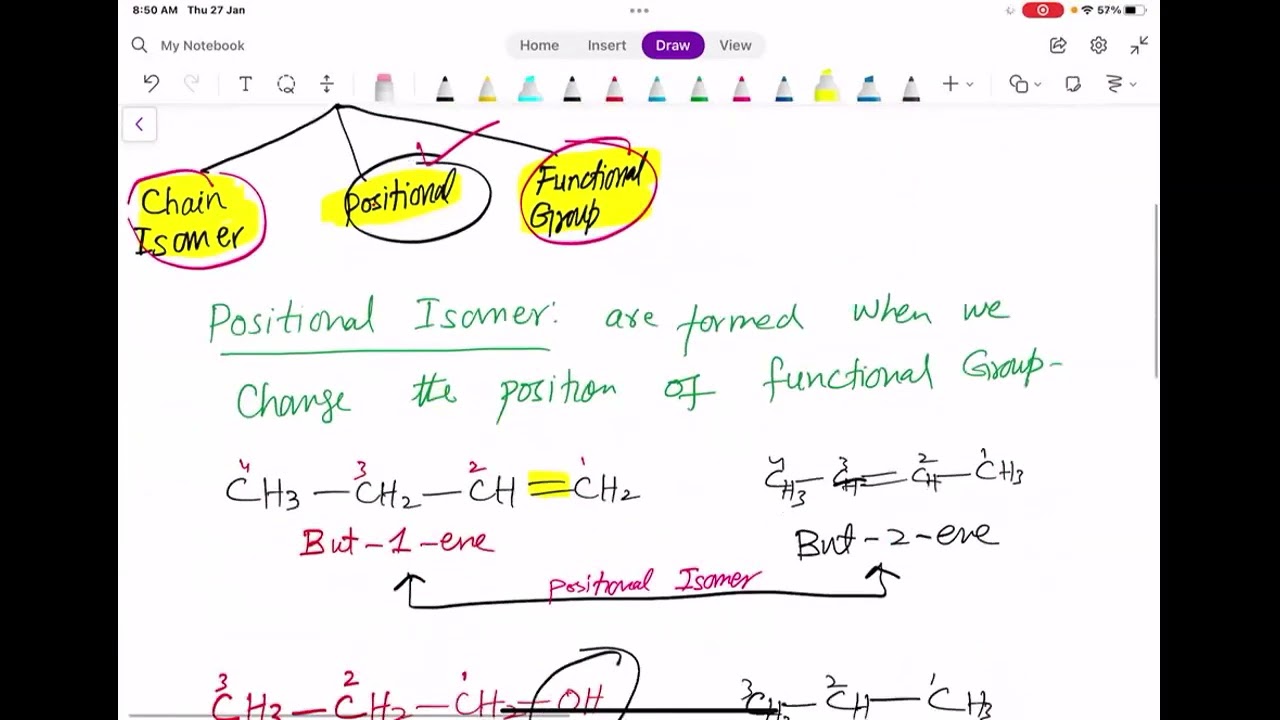 8:50 AM Thu 27 Jan
57%
My Notebook
Home Insert Draw View
Chain Isomer
Positional
Functional Group
Positional Isomer: are formed when we
Change the position of functional Group-
4 3 2 1
CH3 — CH2 — CH = CH2
4 3 2 1
CH3 — CH = CH — CH3
But-1-ene
But-2-ene
Positional Isomer
3 2 1
CH3 — CH2 — CH2 — OH
3 2 1
CH3 — CH — CH3